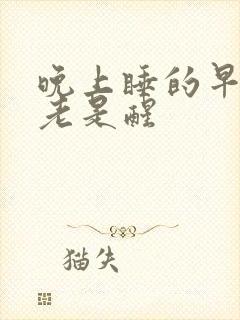 晚上睡的早
老是醒
猫失